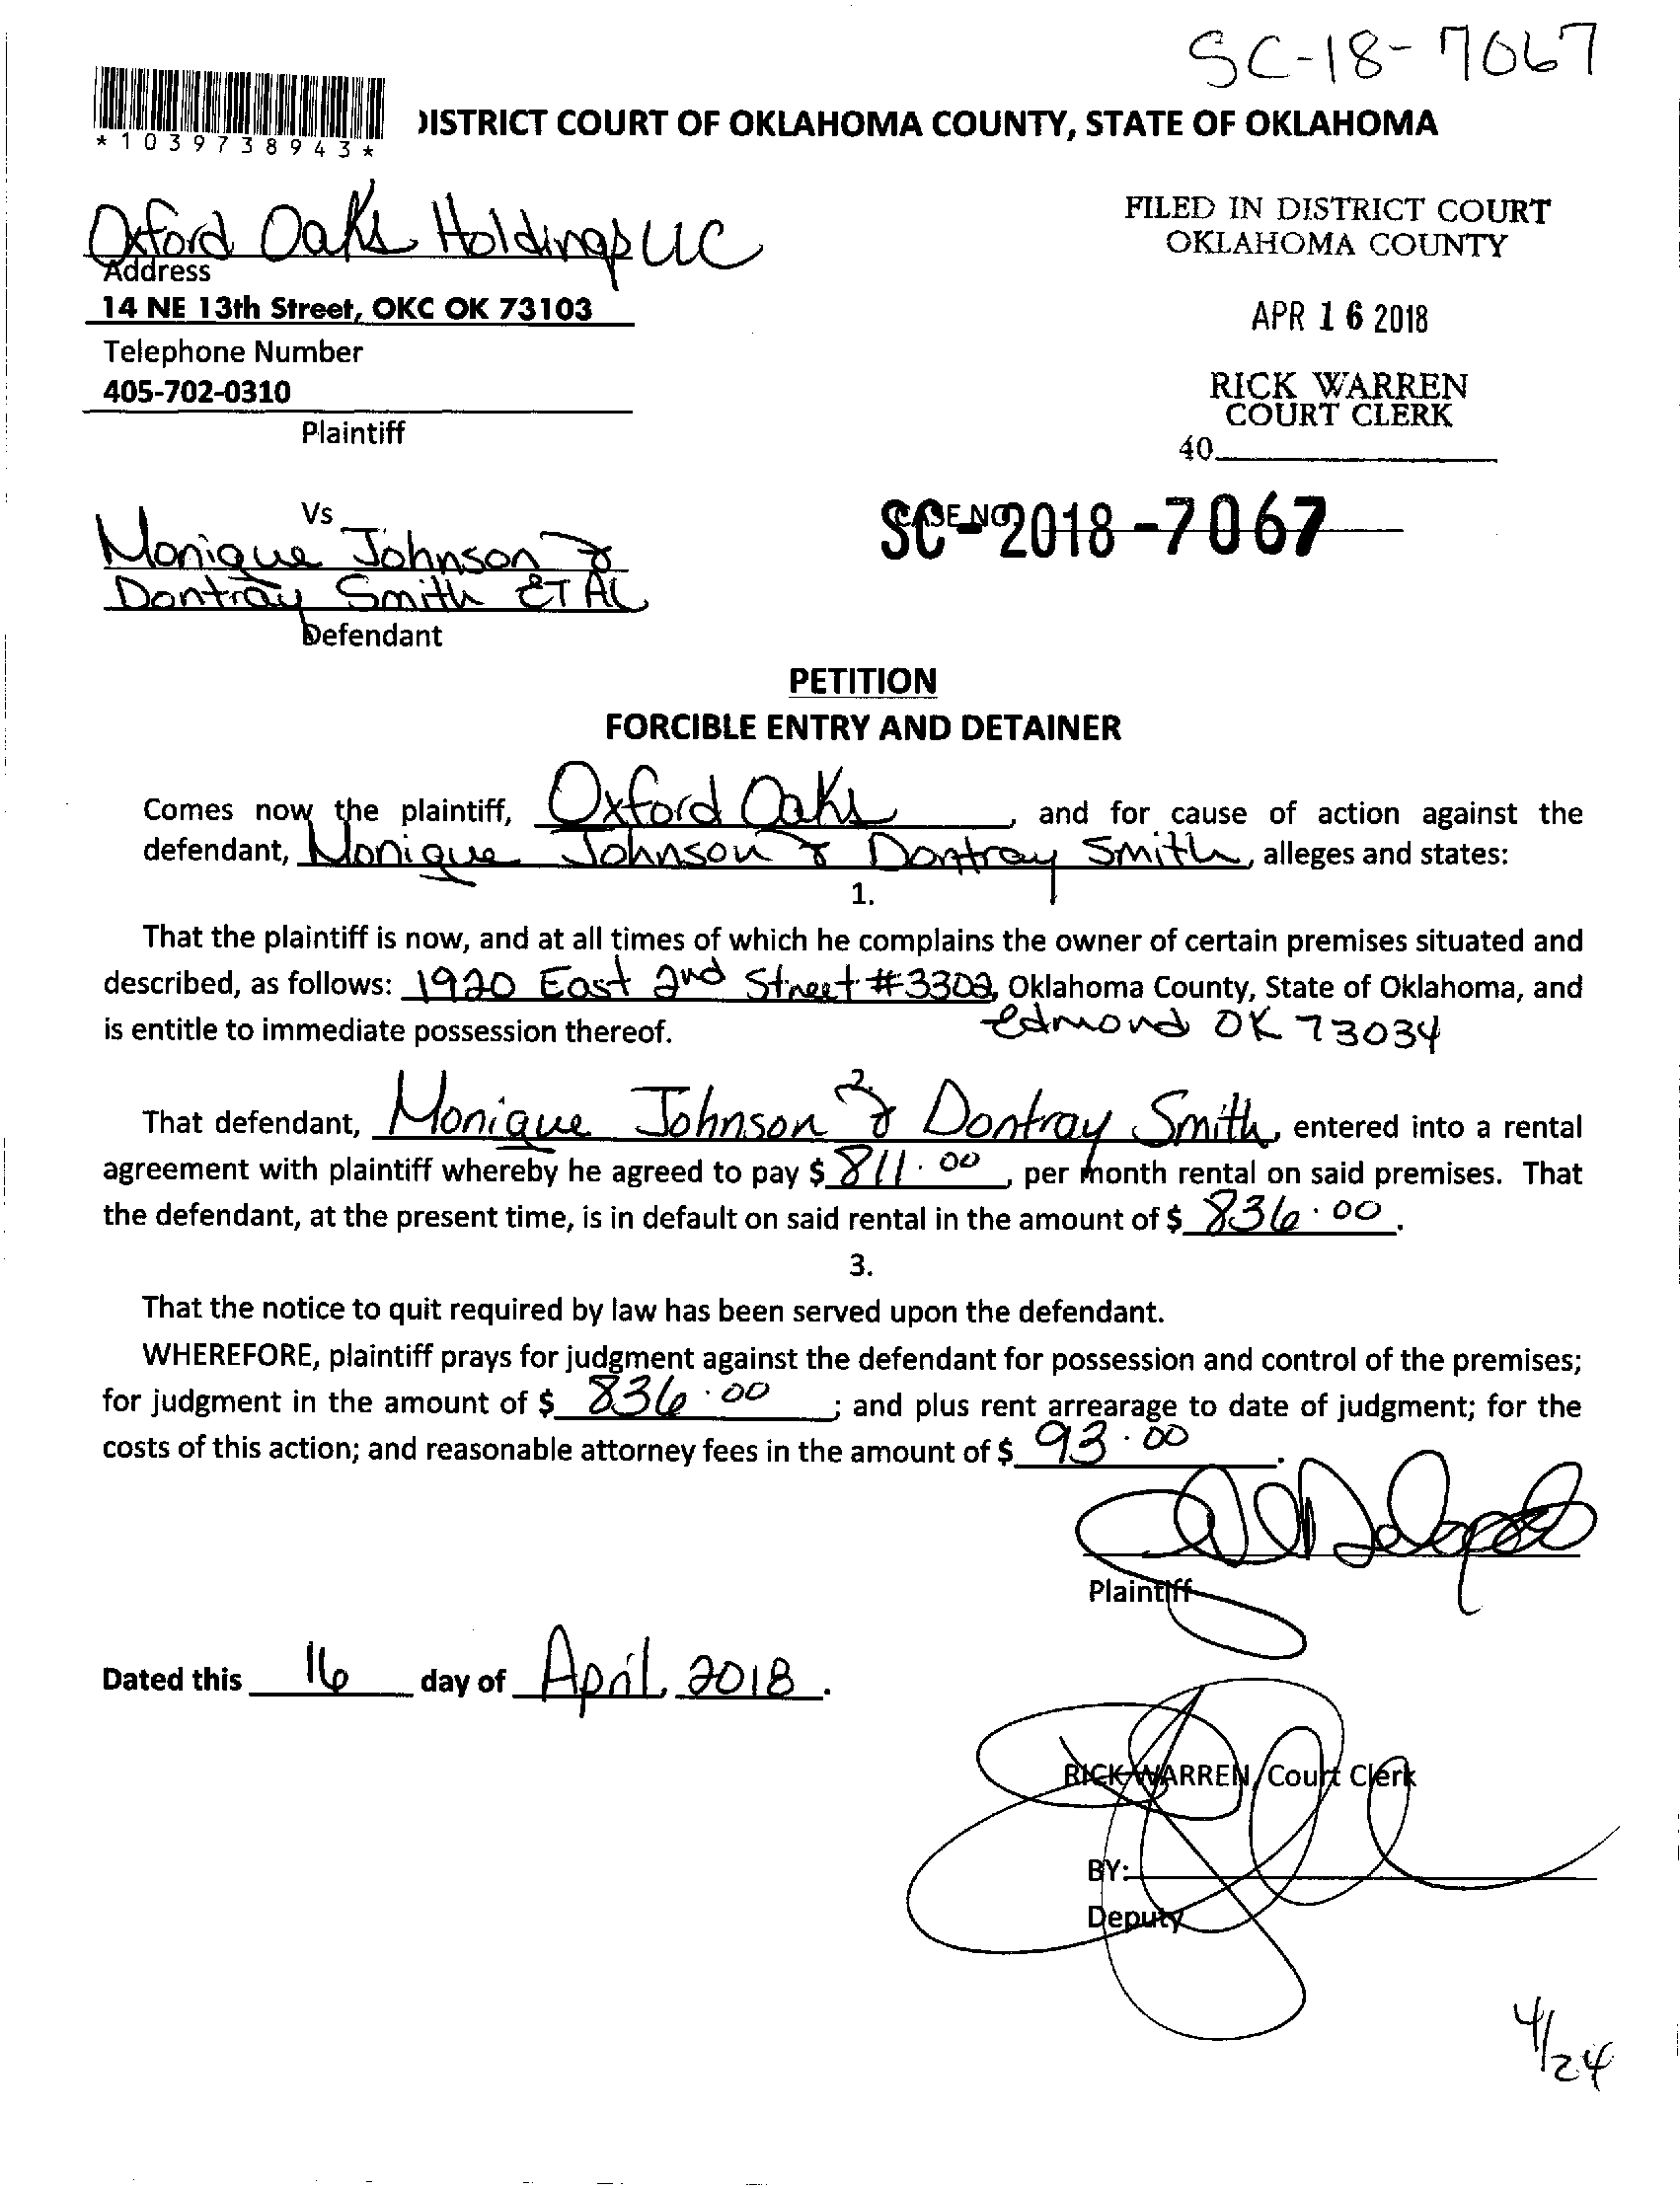 SC-18-7067
*1039738943*
DISTRICT COURT OF OKLAHOMA COUNTY, STATE OF OKLAHOMA
Oxford Oaks Holdings LLC
Address
14 NE 13th Street, OKC OK 73103
Telephone Number
405-702-0310
Plaintiff
FILED IN DISTRICT COURT
OKLAHOMA COUNTY
APR 16 2018
RICK WARREN
COURT CLERK
40
Vs
Monique Johnson &
Dontray Smith ET AL
Defendant
CASE NO
SC-2018-7067
PETITION
FORCIBLE ENTRY AND DETAINER
Comes now the plaintiff, Oxford Oaks, and for cause of action against the
defendant, Monique Johnson & Dontray Smith, alleges and states:
1.
That the plaintiff is now, and at all times of which he complains the owner of certain premises situated and
described, as follows: 1920 East 2nd Street #3302, Oklahoma County, State of Oklahoma, and
is entitle to immediate possession thereof. Edmond OK 73034
2.
That defendant, Monique Johnson & Dontray Smith, entered into a rental
agreement with plaintiff whereby he agreed to pay $ 811.00, per month rental on said premises. That
the defendant, at the present time, is in default on said rental in the amount of $ 836.00.
3.
That the notice to quit required by law has been served upon the defendant.
WHEREFORE, plaintiff prays for judgment against the defendant for possession and control of the premises;
for judgment in the amount of $ 836.00; and plus rent arrearage to date of judgment; for the
costs of this action; and reasonable attorney fees in the amount of $ 93.00.
Plaintiff
Dated this 16 day of April, 2018.
RICK WARREN, Court Clerk
BY:
Deputy
4/24